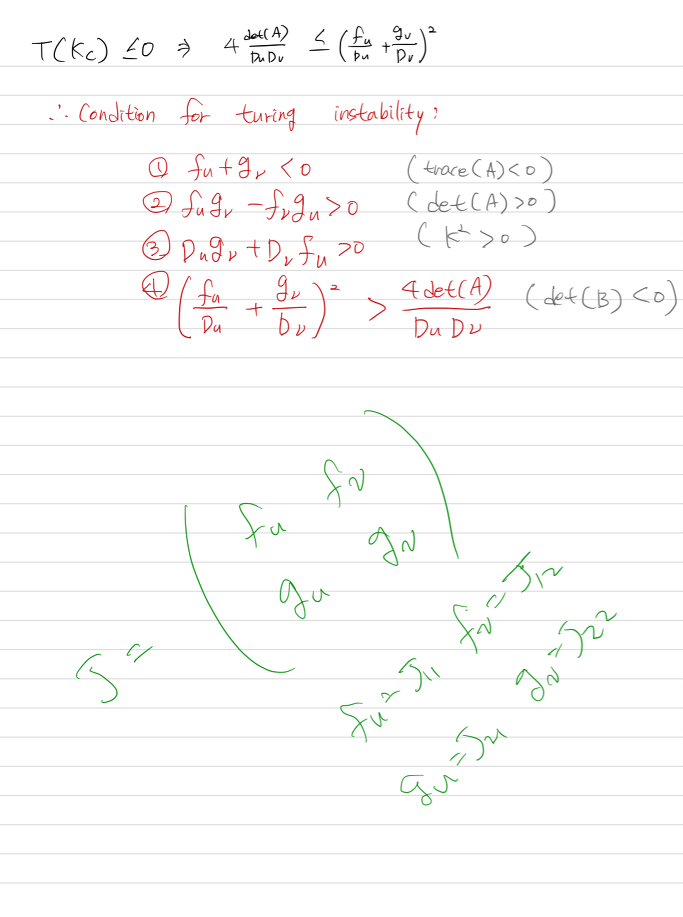 T(Kc) ≤0 ⇒ 4 det(A)/DuDv ≤ (fu/Du + gv/Dv)²
∴ Condition for turing instability:
① fu+gv <0 (trace(A)<0)
② fugv -fvgu>0 (det(A)>0)
③ Dugv+Dvfu >0 (K²>0)
④ (fu/Du + gv/Dv)² > 4det(A)/DuDv (det(B)<0)
J = (fu fv
gu gv)
fu=J11 fv=J12
gu=J21 gv=J22